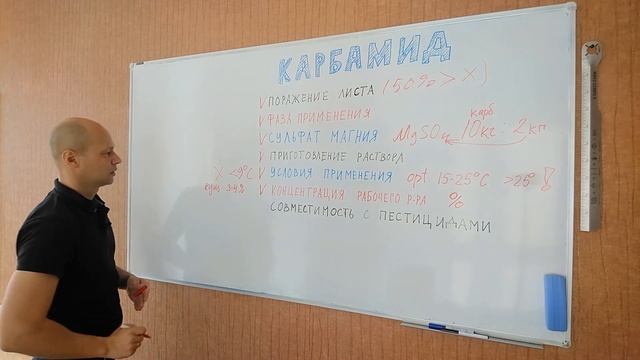 КАРБАМИД
√ ПОРАЖЕНИЕ ЛИСТА (50% > X)
√ ФАЗА ПРИМЕНЕНИЯ
√ СУЛЬФАТ МАГНИЯ MgSO4 карб 10кг : 2кг
√ ПРИГОТОВЛЕНИЕ РАСТВОРА
X <9°C √ УСЛОВИЯ ПРИМЕНЕНИЯ opt 15-25°C >25° !
кущ 3-4% √ КОНЦЕНТРАЦИЯ РАБОЧЕГО Р-РА %
СОВМЕСТИМОСТЬ С ПЕСТИЦИДАМИ